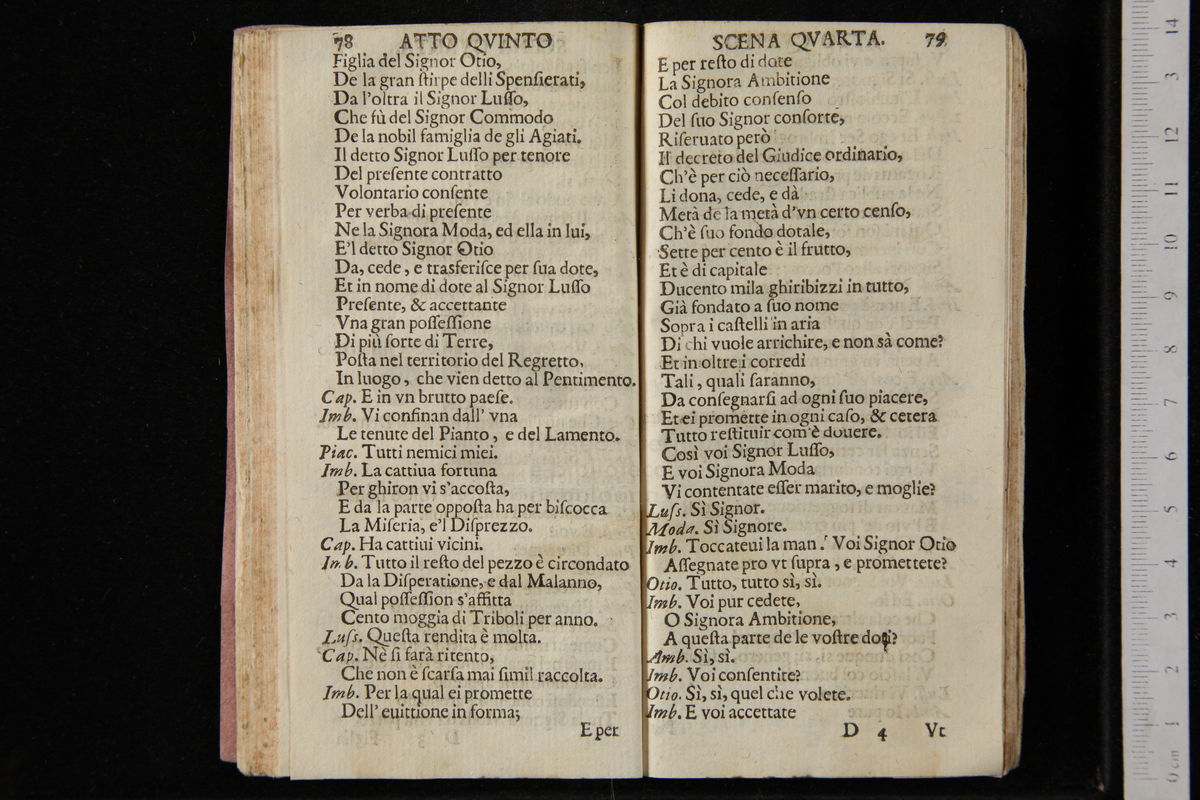 78 ATTO QVINTO
Figlia del Signor Otio,
De la gran ſtirpe delli Spenſierati,
Da l'oltra il Signor Luſſo,
Che fù del Signor Commodo
De la nobil famiglia de gli Agiati.
Il detto Signor Luſſo per tenore
Del preſente contratto
Volontario conſente
Per verba di preſente
Ne la Signora Moda, ed ella in lui,
E'l detto Signor Otio
Da, cede, e trasferiſce per ſua dote,
Et in nome di dote al Signor Luſſo
Preſente, & accettante
Vna gran poſſeſſione
Di più ſorte di Terre,
Poſta nel territorio del Regretto,
In luogo, che vien detto al Pentimento.
Cap. E in vn brutto paeſe.
Imb. Vi confinan dall' vna
Le tenute del Pianto, e del Lamento.
Piac. Tutti nemici miei.
Imb. La cattiua fortuna
Per ghiron vi s'accoſta,
E da la parte oppoſta ha per biſcocca
La Miſeria, e'l Diſprezzo.
Cap. Ha cattiui vicini.
Imb. Tutto il reſto del pezzo è circondato
Da la Diſperatione, e dal Malanno,
Qual poſſeſſion s'affitta
Cento moggia di Triboli per anno.
Luſs. Queſta rendita è molta.
Cap. Nè ſi farà ritento,
Che non è ſcarſa mai ſimil raccolta.
Imb. Per la qual ei promette
Dell' euittione in forma;
E per
SCENA QVARTA. 79
E per reſto di dote
La Signora Ambitione
Col debito conſenſo
Del ſuo Signor conſorte,
Riſeruato però
Il decreto del Giudice ordinario,
Ch'è per ciò neceſſario,
Li dona, cede, e dà
Metà de la metà d'vn certo cenſo,
Ch'è ſuo fondo dotale,
Sette per cento è il frutto,
Et è di capitale
Ducento mila ghiribizzi in tutto,
Già fondato a ſuo nome
Sopra i caſtelli in aria
Di chi vuole arrichire, e non sà come?
Et in oltre i corredi
Tali, quali ſaranno,
Da conſegnarſi ad ogni ſuo piacere,
Et ei promette in ogni caſo, & cetera
Tutto reſtituir com'è douere.
Così voi Signor Luſſo,
E voi Signora Moda
Vi contentate eſſer marito, e moglie?
Luſs. Sì Signor.
Moda. Sì Signore.
Imb. Toccateui la man. Voi Signor Otio
Aſſegnate pro vt ſupra, e promettete?
Otio. Tutto, tutto sì, sì.
Imb. Voi pur cedete,
O Signora Ambitione,
A queſta parte de le voſtre doti?
Amb. Sì, sì.
Imb. Voi conſentite?
Otio. Sì, sì, quel che volete.
Imb. E voi accettate
D 4 Vt
14
13
12
11
10
9
8
7
6
5
4
3
2
1
0 cm